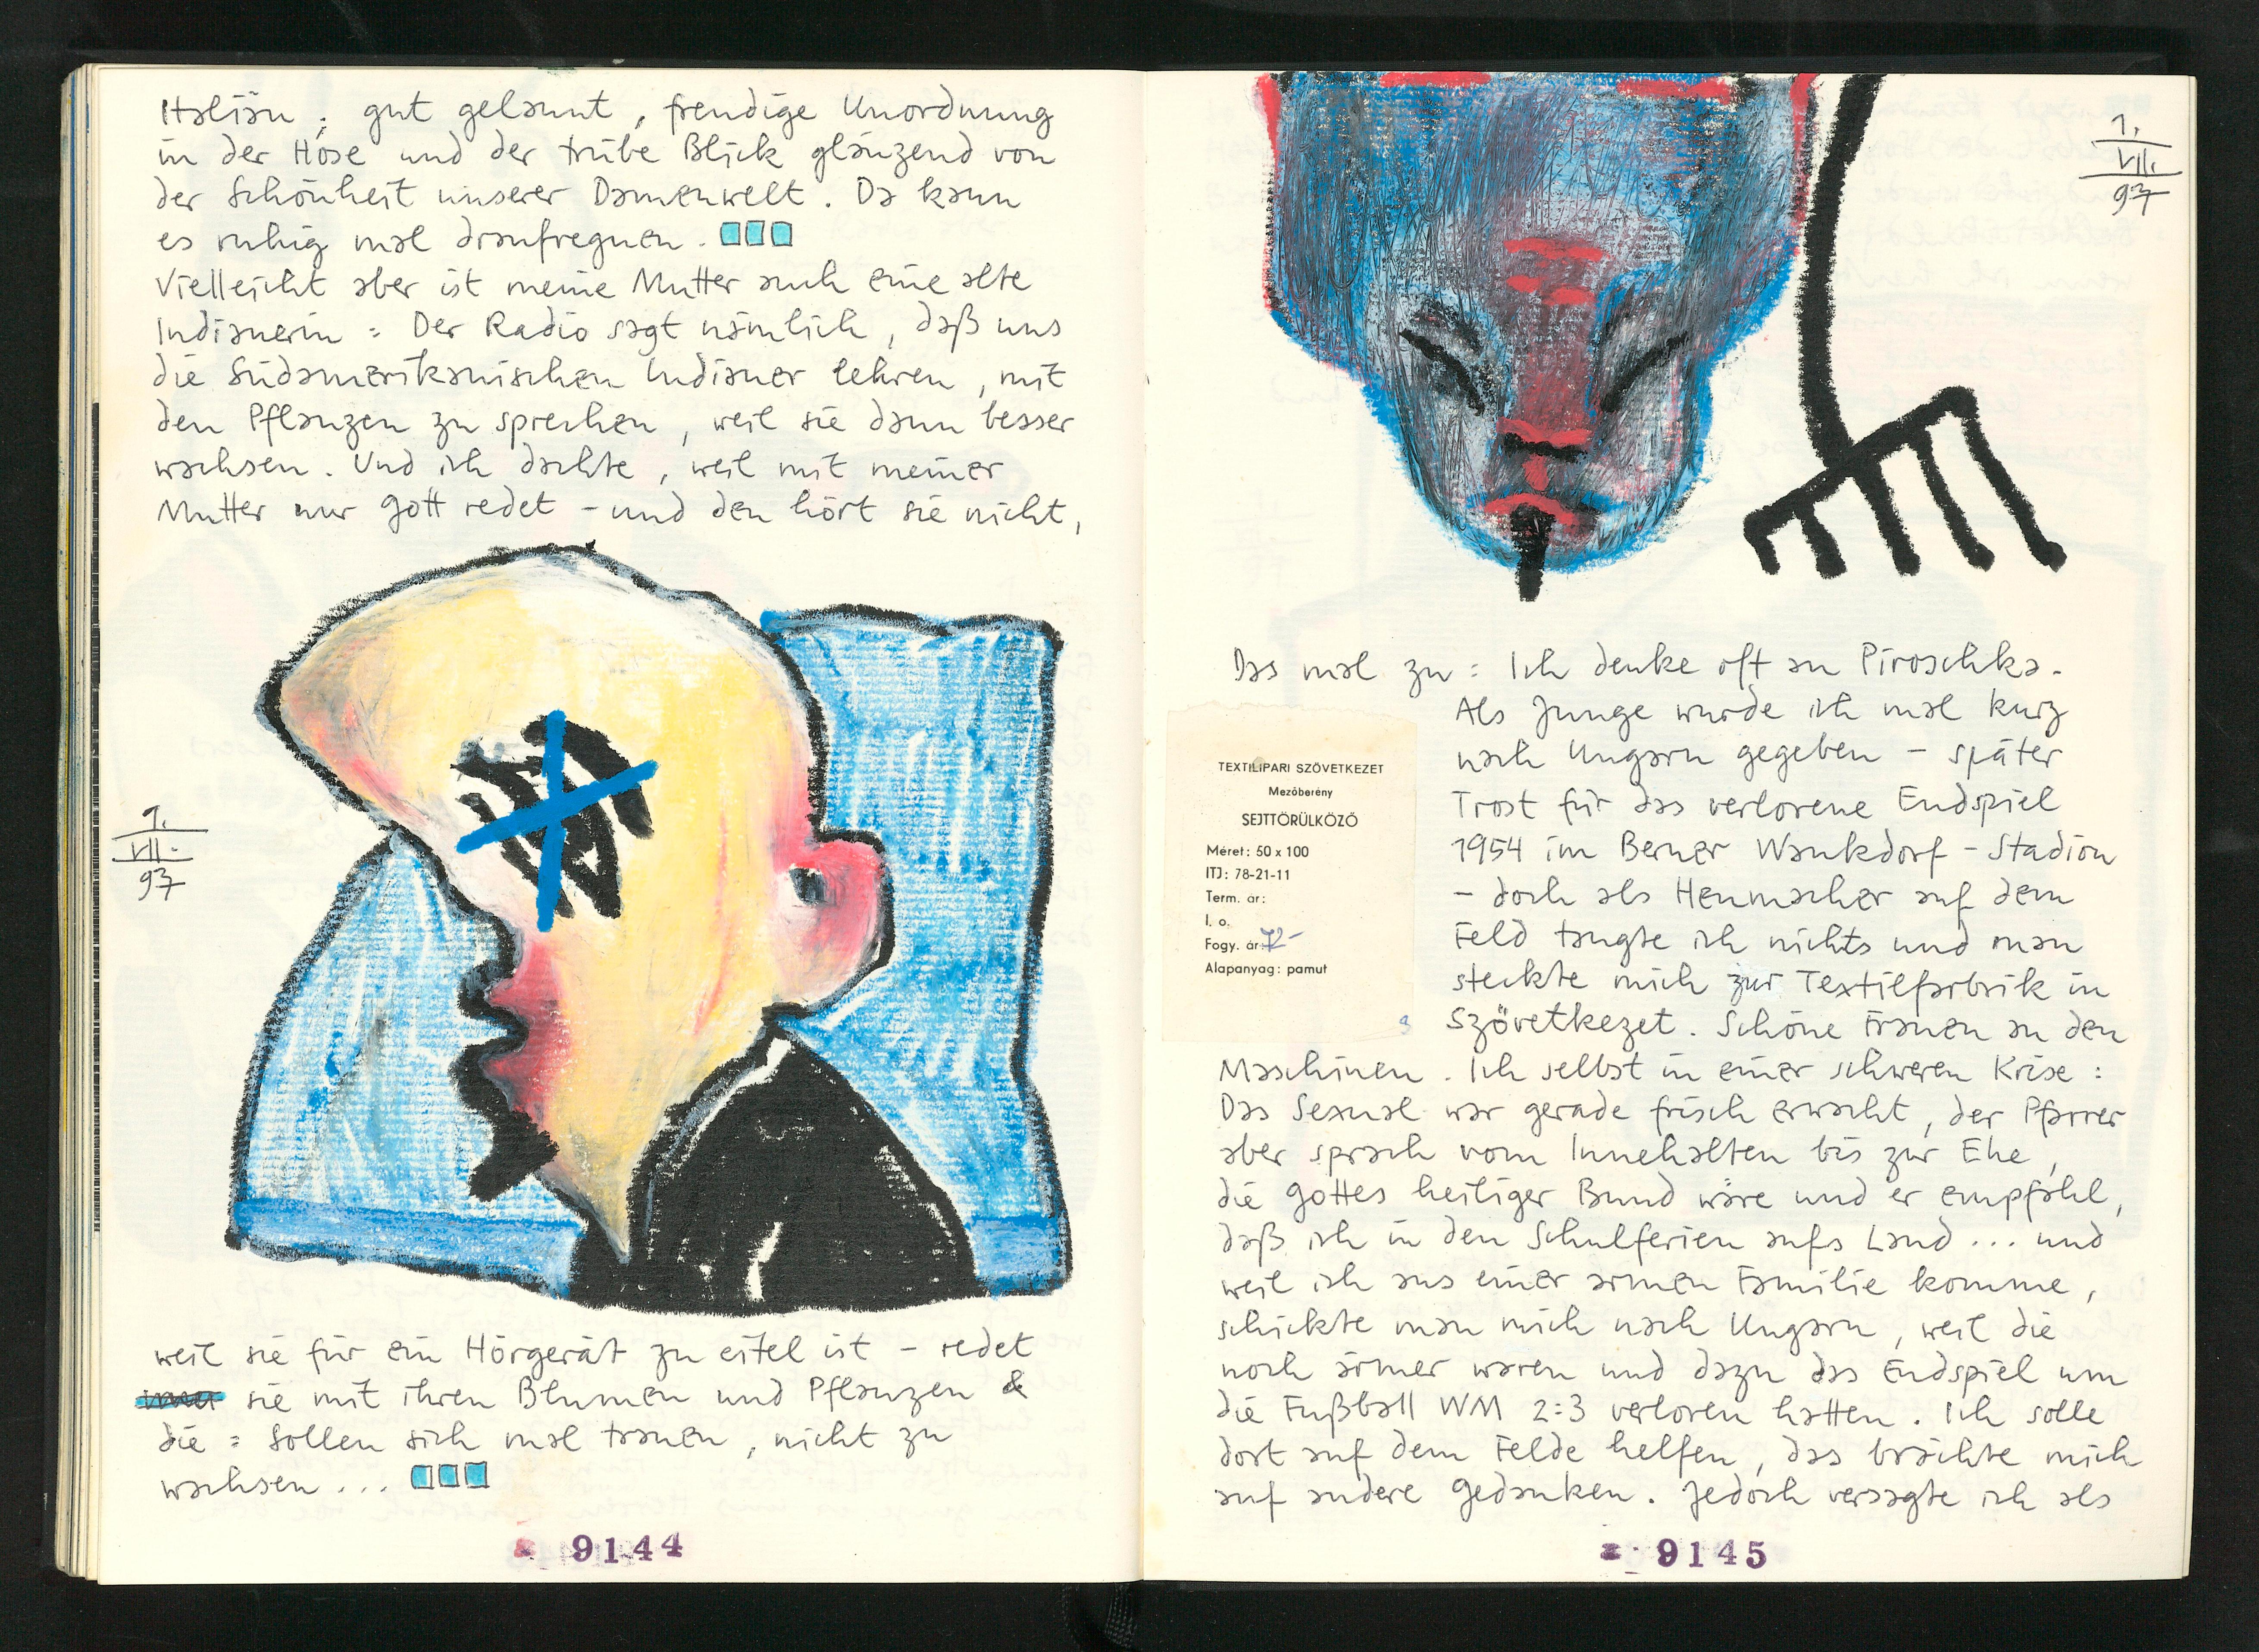 Italiän; gut gelaunt, freudige Unordnung
in der Hose und der trübe Blick glänzend von
der Schönheit unserer Damenwelt. Da kann
es ruhig mal draufregnen.
Vielleicht aber ist meine Mutter auch eine alte
Indianerin = Der Radio sagt nämlich, daß uns
die Südamerikanischen Indianer lehren, mit
den Pflanzen zu sprechen, weil sie dann besser
wachsen. Und ich dachte, weil mit meiner
Mutter nur Gott redet - und den hört sie nicht,
1.
VII.
97
weil sie für ein Hörgerät zu eitel ist - redet
sie mit ihren Blumen und Pflanzen &
die = sollen sich mal trauen, nicht zu
wachsen...
9144
1.
VII.
97
Das mal zu = Ich denke oft an Piroschka.
Als Junge wurde ich mal kurz
nach Ungarn gegeben - später
Trost für das verlorene Endspiel
1954 im Berner Wankdorf-Stadion
- doch als Heumacher auf dem
Feld taugte ich nichts und man
steckte mich zur Textilfabrik in
Szövetkezet. Schöne Frauen an den
Maschinen. Ich selbst in einer schweren Krise:
Das Sexual war gerade frisch erwacht, der Pfarrer
aber sprach vom Innehalten bis zur Ehe,
die Gottes heiliger Bund wäre und er empfahl,
daß ich in den Schulferien aufs Land... und
weil ich aus einer armen Familie komme,
schickte man mich nach Ungarn, weil die
noch ärmer waren und dazu das Endspiel um
die Fußball WM 2:3 verloren hatten. Ich solle
dort auf dem Felde helfen, das brächte mich
auf andere Gedanken. Jedoch versagte ich als
TEXTILIPARI SZÖVETKEZET
Mezőberény
SEJTTÖRÜLKÖZŐ
Méret: 50 x 100
ITJ: 78-21-11
Term. ár:
I. o.
Fogy. ár: 72-
Alapanyag: pamut
9145